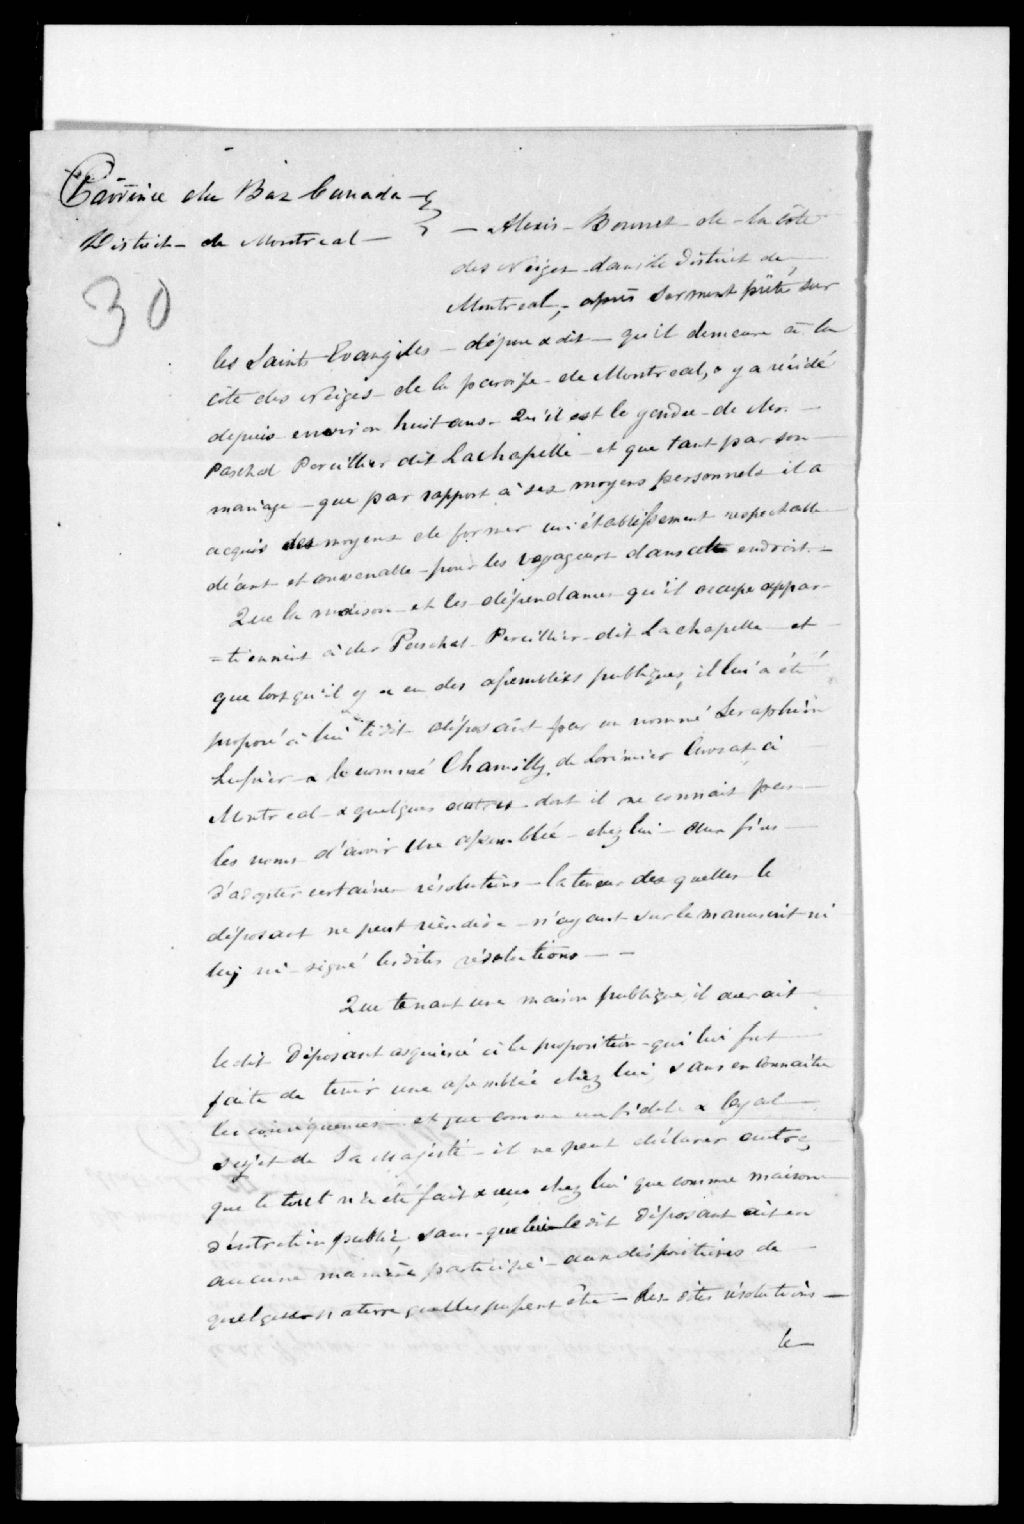 Province du Bas Canada
District de Montreal — Alexis Bonnet de la côte
des Neiges dans le District de
Montreal, après serment prêté sur
les Saints Evangiles — dépose & dit — qu'il demeure à la
côte des Neiges de la paroisse de Montreal, & y a résidé
depuis environ huit ans. Qu'il est le gendre de Mr.
Paschal Persillier dit Lachapelle et que tant par son
mariage — que par rapport à ses moyens personnels il a
acquis des moyens de former un établissement respectable
décent et convenable — pour les voyageurs dans cet endroit. —
Que la maison et les dépendances qu'il occupe appar-
=tiennent à Mr Paschal Persillier dit Lachapelle et
que lorsqu'il y a eu des assemblées publiques, il lui a été
proposé à lui le dit déposant par un nommé Seraphin
& le nommé Chamilly de Lorimier Avocat à
Montreal & quelques autres dont il ne connait pas
les noms d'avoir une assemblée chez lui aux fins
d'adopter certaines résolutions — la teneur des quelles le
déposant ne peut rien dire — n'ayant vu le manuscrit ni
lu, ni signé les dites résolutions — —
Que tenant une maison publique, il aurait
le dit Déposant acquiescé à la proposition qui lui fut
faite de tenir une assemblée chez lui, sans en connaitre
les conséquences — et que comme un fidele & loyal
sujet de Sa Majesté — il ne peut déclarer autre
que le tout n'a été fait & chez lui que comme maison
d'entretien public, sans que le dit Déposant ait en
aucune manière participé aux dispositions de
quelque nature quelles puissent être — des dites résolutions —
le